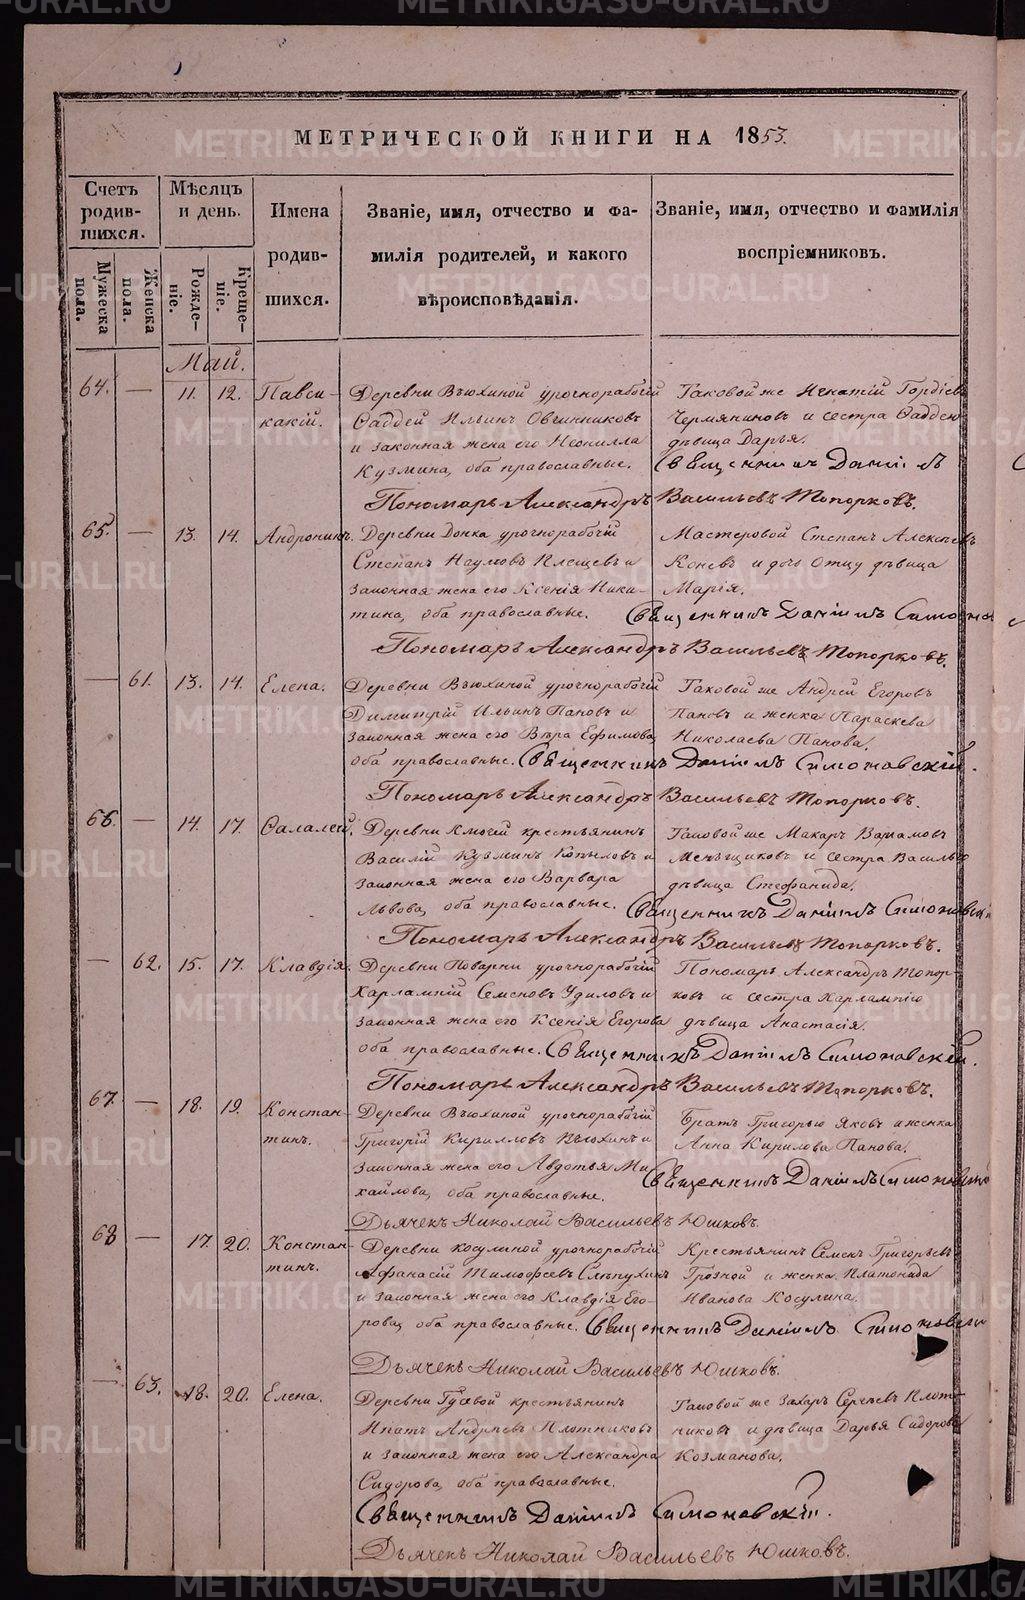 МЕТРИЧЕСКОЙ КНИГИ НА 1853.
Счетъ родив-шихся.
Мужеска пола.
Женска пола.
Мѣсяцъ и день.
Рожде-ніе.
Креще-ніе.
Имена родив-шихся.
Званіе, имя, отчество и фа-
милія родителей, и какого
вѣроисповѣданія.
Званіе, имя, отчество и фамилія
воспріемниковъ.
Май.
64. — 11. 12. Павси-
какій.
Деревни Вьюхиной урочнорабочій
Ѳаддей Ильинъ Овчинниковъ
и законная жена его Неонилла
Кузмина, оба православные.
Таковой же Игнатій Гордіевъ
Чермяниновъ и сестра Ѳаддею
дѣвица Дарья.
Священникъ Даніилъ
Пономарь Александръ Васильевъ Топорковъ.
65. — 13. 14. Андроникъ.
Деревни урочнорабочій
Степанъ Наумовъ Плещевъ и
законная жена его Ксенія Ники-
тина, оба православные.
Мастеровой Степанъ Алексѣевъ
Коневъ и дочь Отцу дѣвица
Марія.
Священникъ Даніилъ Симоновскій
Пономарь Александръ Васильевъ Топорковъ.
— 61. 13. 14. Елена.
Деревни Вьюхиной урочнорабочій
Димитрій Ильинъ Пановъ и
законная жена его Вѣра Ефимова,
оба православные.
Таковой же Андрей Егоровъ
Пановъ и женка Параскева
Николаева Панова.
Священникъ Даніилъ Симоновскій.
Пономарь Александръ Васильевъ Топорковъ.
66. — 14. 17. Ѳалалей.
Деревни крестьянинъ
Василій Кузминъ Копыловъ и
законная жена его Варвара
Львова, оба православные.
Таковой же Макаръ
Меньщиковъ и сестра Василью
дѣвица Стефанида.
Священникъ Даніилъ Симоновскій
Пономарь Александръ Васильевъ Топорковъ.
— 62. 15. 17. Клавдія.
Деревни Поварни урочнорабочій
Харлампій Семеновъ Удиловъ и
законная жена его Ксенія Егорова
оба православные.
Пономарь Александръ Топор-
ковъ и сестра Харлампію
дѣвица Анастасія.
Священникъ Даніилъ Симоновскій.
Пономарь Александръ Васильевъ Топорковъ.
67. — 18. 19. Констан-
тинъ.
Деревни Вьюхиной урочнорабочій
Григорій Кирилловъ Вьюхинъ и
законная жена его Авдотья Ми-
хайлова, оба православные.
Братъ Григорью Яковъ и женка
Анна Кирилова Панова.
Священникъ Даніилъ Симоновскій
Дьячекъ Николай Васильевъ Юшковъ.
68 — 17. 20. Констан-
тинъ.
Деревни Косулиной урочнорабочій
Афанасій Тимофеевъ Слѣпухинъ
и законная жена его Клавдія Его-
рова, оба православные.
Крестьянинъ Семенъ Григорьевъ
Грозной и женка Платонида
Иванова Косулина.
Священникъ Даніилъ Симоновскій
Дьячекъ Николай Васильевъ Юшковъ.
— 63. 18. 20. Елена.
Деревни Гусевой крестьянинъ
Ипатъ Андреевъ Плотниковъ
и законная жена его Александра
Сидорова, оба православные.
Таковой же Захаръ Сергеевъ Плот-
никовъ и дѣвица Дарья Сидорова
Козманова.
Священникъ Даніилъ Симоновскій.
Дьячекъ Николай Васильевъ Юшковъ.
METRIKI.GASO-URAL.RU